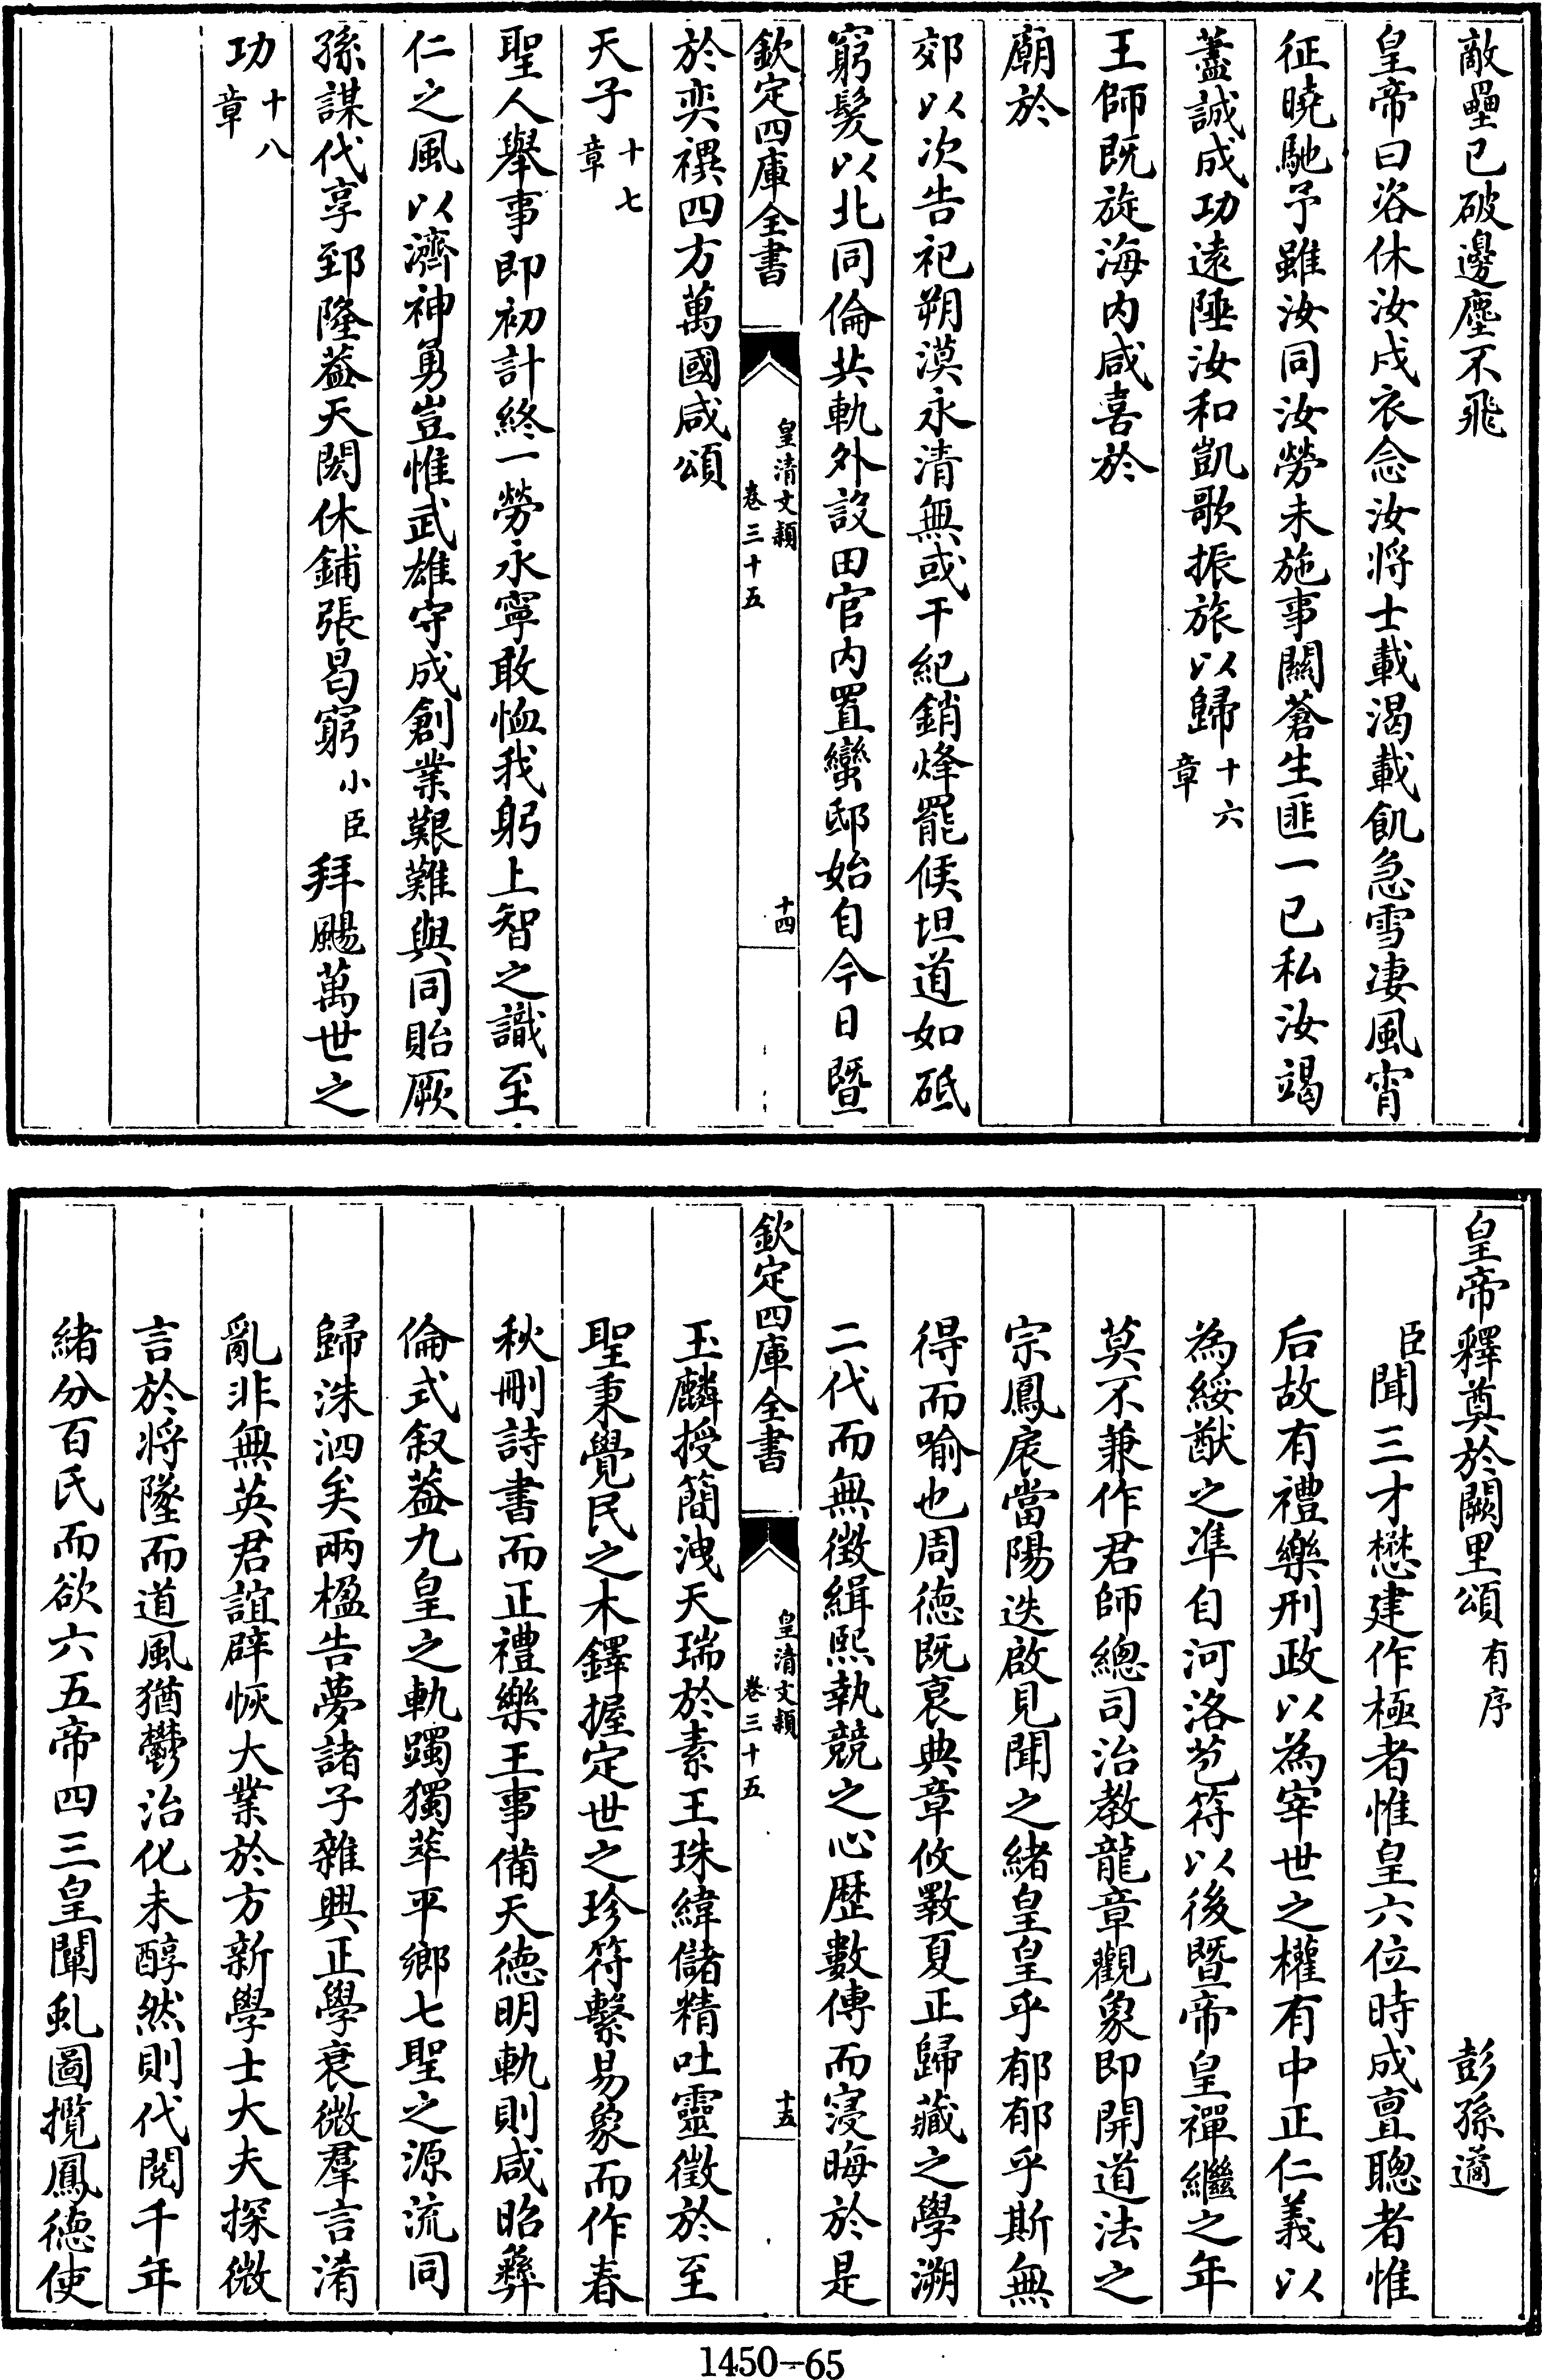 敵壘已破邊塵不飛
皇帝曰咨休汝戍衣念汝將士載渴載飢急雪淒風宵
征曉馳予雖汝同汝勞未施事關蒼生匪一己私汝竭
藎誠成功遠陲汝和凱歌振旅以歸十六章
王師既旋海内咸喜於
廟於
郊以次告祀朔漠永清無或干紀銷烽罷候坦道如砥
窮髮以北同倫共軌外設田官内置蠻邸始自今日暨
欽定四庫全書
皇清文穎
卷三十五
十四
於奕禩四方萬國咸頌
天子十七章
聖人舉事即初計終一勞永寧敢恤我躬上智之識至
仁之風以濟神勇豈惟武雄守成創業艱難與同貽厥
孫謀代享郅隆葢天閎休鋪張曷窮小臣拜颺萬世之
功十八章
皇帝釋奠於闕里頌有序
彭孫遹
臣聞三才懋建作極者惟皇六位時成亶聰者惟
后故有禮樂刑政以為宰世之權有中正仁義以
為綏猷之準自河洛苞符以後暨帝皇禪繼之年
莫不兼作君師總司治教龍章觀象即開道法之
宗鳳扆當陽迭啟見聞之緒皇皇乎郁郁乎斯無
得而喻也周德既衰典章攸斁夏正歸藏之學溯
二代而無徵緝熙執競之心歷數傳而寖晦於是
欽定四庫全書
皇清文穎
卷三十五
十五
玉麟授簡洩天瑞於素王珠緯儲精吐靈徵於至
聖秉覺民之木鐸握定世之珍符繫易象而作春
秋刪詩書而正禮樂王事備天德明軌則咸昭彝
倫式叙葢九皇之軌躅獨萃平鄉七聖之源流同
歸洙泗矣兩楹告夢諸子雜興正學衰微羣言淆
亂非無英君誼辟恢大業於方新學士大夫探微
言於將墜而道風猶鬱治化未醇然則代閱千年
緒分百氏而欲六五帝四三皇闡虬圖攬鳳德使
1450-65